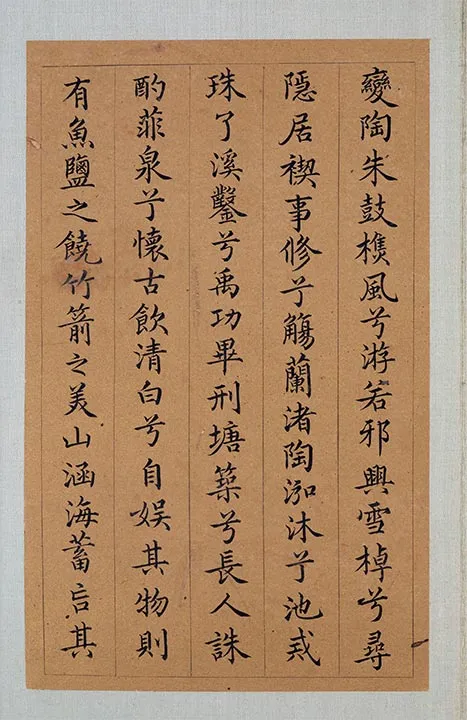 變陶朱鼓樵風兮游若邪興雪棹兮尋
隱居禊事修兮觴蘭渚陶泓沐兮池戒
珠了溪鑿兮禹功畢刑塘築兮長人誅
酌菲泉兮懷古飲清白兮自娛其物則
有魚鹽之饒竹箭之美山涵海蓄其